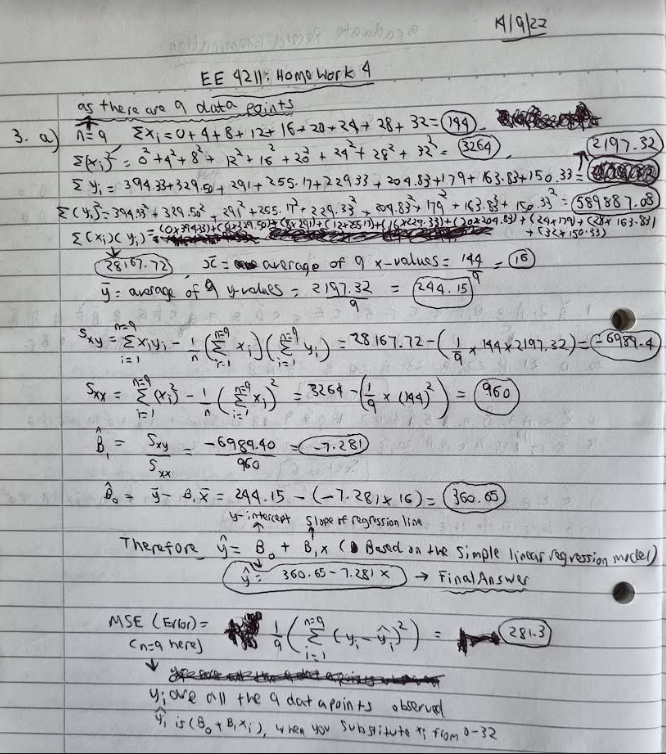 4/9/22
EE 4211: Homework 4
as there are 9 data points
3. a) n=9 Σxi = 0+4+8+12+16+20+24+28+32 = 144
Σ(xi)² = 0²+4²+8²+12²+16²+20²+24²+28²+32² = 3264
2197.32
Σyi = 394.33+329.50+291+255.17+229.33+204.83+179+163.83+150.33 =
Σ(yi)² = 394.33²+329.50²+291²+255.17²+229.33²+204.83²+179²+163.83²+150.33² = 589887.08
Σ(xi)(yi) = (0×394.33)+(4×329.50)+(8×291)+(12×255.17)+(16×229.33)+(20×204.83)+(24×179)+(28×163.83)
+(32×150.33)
28167.72 , x̄ = average of 9 x-values = 144/9 = 16
ȳ = average of 9 y-values = 2197.32/9 = 244.15
Sxy = Σ(i=1, n=9) xiyi - 1/n (Σ(i=1, n=9) xi)(Σ(i=1, n=9) yi) = 28167.72 - (1/9 × 144 × 2197.32) = -6989.4
Sxx = Σ(i=1, n=9) (xi²) - 1/n (Σ(i=1, n=9) xi)² = 3264 - (1/9 × (144)²) = 960
B̂1 = Sxy/Sxx = -6989.40/960 = -7.281
B̂0 = ȳ - B1x̄ = 244.15 - (-7.281×16) = 360.65
y-intercept slope of regression line
Therefore ŷ = B0 + B1x (Based on the simple linear regression model)
ŷ = 360.65 - 7.281x → Final Answer
MSE (Error) = 1/9 (Σ(i=1, n=9) (yi - ŷi)²) = 281.3
(n=9 here)
yi are all the 9 datapoints observed
ŷi is (B0 + B1xi), when you substitute xi from 0-32